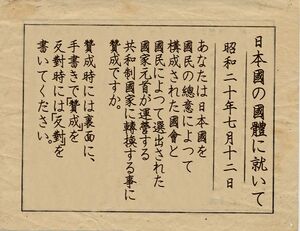 日本國の國體に就いて
昭和二十年七月十二日
あなたは日本國を
國民の總意によって
構成された國會と
國民によって選出された
國家元首が運營する
共和制國家に轉換する事に
賛成ですか。
賛成時には裏面に、
手書きで「賛成」を
反對時には「反對」を
書いてください。